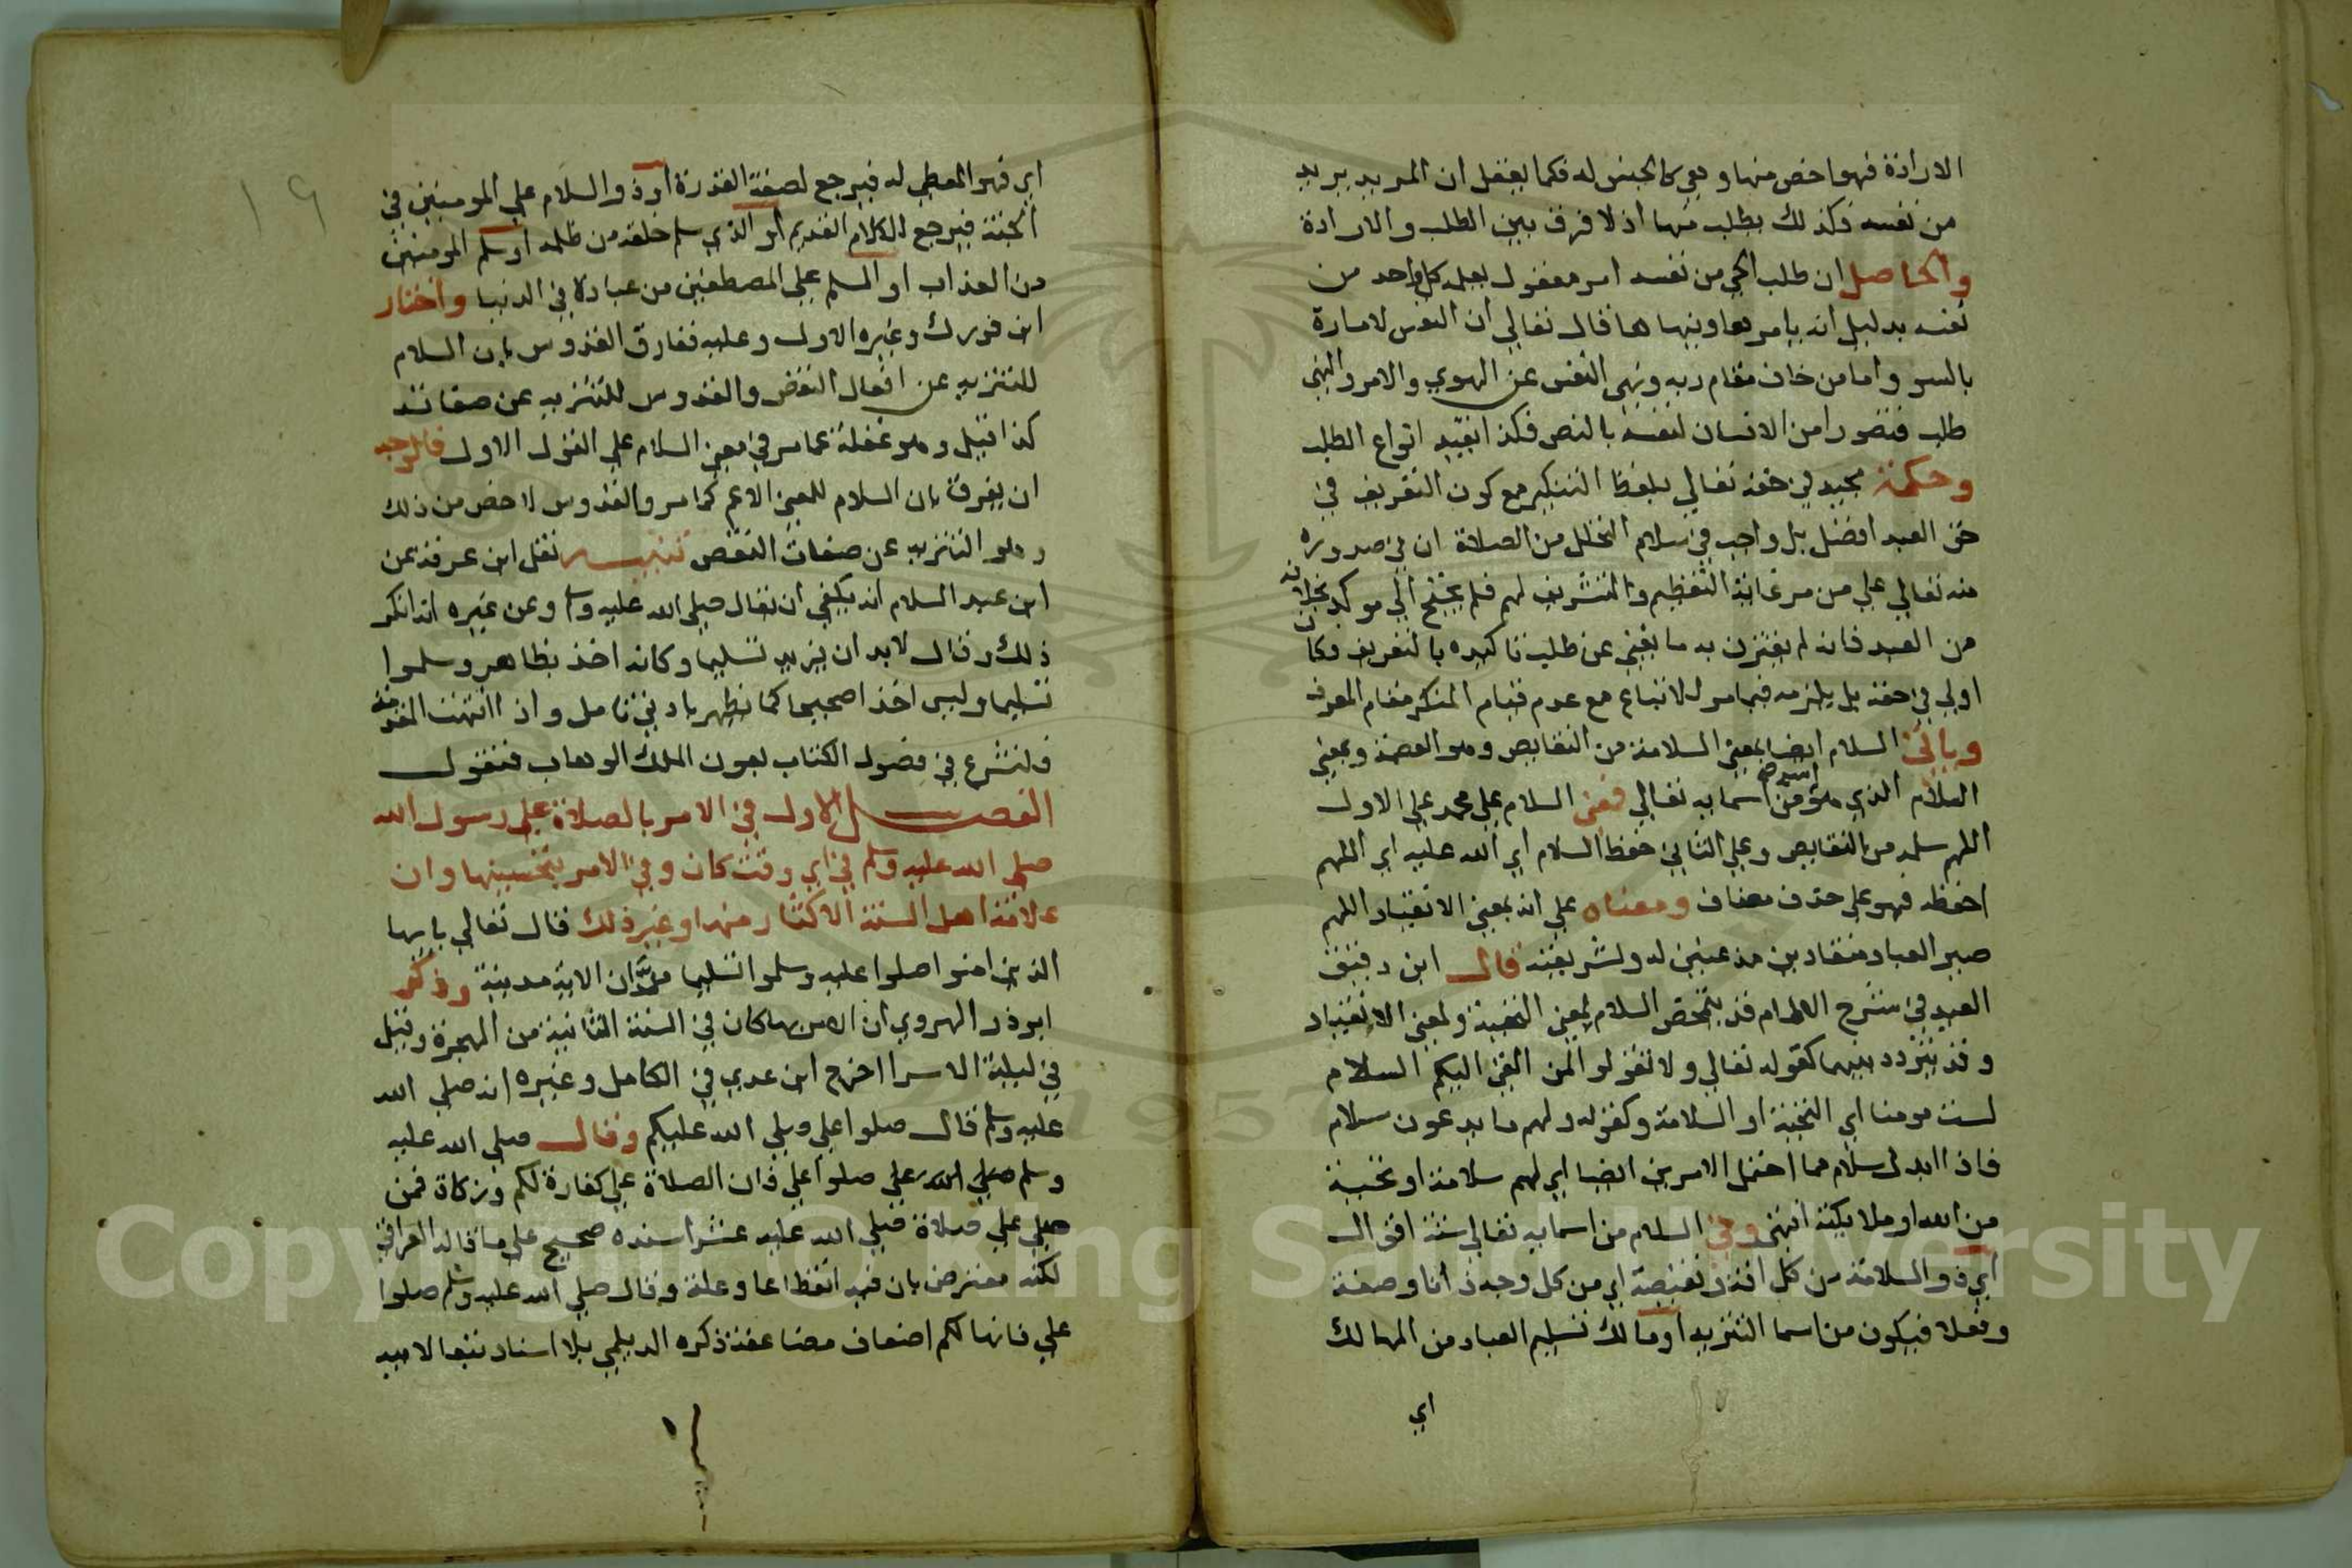 الارادة فهو اخص منها وهي كالجنس له فكما يعقل ان المريد يريد
من نفسه فكذلك يطلب منها اذ لا فرق بين الطلب والارادة
والحاصل ان طلب الحي من نفسه امر معقول يعلمه كل واحد من
نفسه بدليل انه يامرها وينهاها قال تعالي ان النفس لامارة
بالسو واما من خاف مقام ربه ونهي النفس عن الهوي والامر والنهي
طلب فتصورا من الانسان لنفسه بالنص فكذا بقية انواع الطلب
وحكمة مجيه في حقه تعالي بلفظ التنكير مع كون التعريف في
حق العبد افضل بل واجب في سلام التحلل من الصلاة ان في صدوره
منه تعالي علي من مر غاية التعظيم والتشريف لهم فلم يحتج الي موكد بخلافه
من العبد فانه لم يقترن به ما يغني عن طلب تاكيده بالتعريف فكان
اولي في حقه بل يلزمه فيما مر للاتباع مع عدم قيام المنكر مقام المعرف
وياتي السلام ايضا بمعني السلامة من النقايص وهو القصد وبمعني
السلام الذي هو اسم من اسمايه تعالي فمعني السلام علي محمد علي الاول
اللهم سلمه من النقايص وعلي الثاني حفظ السلام اي الله عليه اي اللهم
احفظه فهو علي حذف مضاف ومعناه علي انه بمعني الانقياد اللهم
صير العباد منقادين مذعنين له ولشريعته قال ابن دقيق
العيد في شرح الالمام قد يتمحض السلام لمعني التحية ولمعني الانقياد
وقد يتردد بينهما كقوله تعالي ولا تقولوا لمن القي اليكم السلام
لست مومنا اي التحية او السلامة وكقوله ولهم ما يدعون سلام
فاذا ابدل سلام مما احتمل الامرين ايضا اي لهم سلامة او تحية
من الله او ملايكته انتهي وفي السلام من اسمايه تعالي ستة اقوال
اي ذو السلامة من كل افة ونقيصة اي من كل وجه ذاتا وصفة
وفعلا فيكون من اسما التنزيه او مالك تسليم العباد من المهالك
اي
١٩
اي فهو المعطي له فيرجع لصفة القدرة او ذو السلام علي المومنين في
الجنة فيرجع للكلام القديم او الذي سلم خلقه من ظلمه او سلم المومنين
من العذاب او المسلم علي المصطفين من عباده في الدنيا واختار
ابن فورك وغيره الاول وعليه ففارق القدوس بان السلام
للتنزيه عن افعال النقص والقدوس للتنزيه عن صفاته
كذا قيل وهو غفلة عما مر في معني السلام علي القول الاول فالوجه
ان يفرق بان السلام للمعني الاعم كما مر والقدوس لاخص من ذلك
وهو التنزيه عن صفات النقص تنبيه نقل ابن عرفة عن
ابن عبد السلام انه يكفي ان يقال صلي الله عليه وسلم وعن غيره انه انكر
ذلك وقال لا بد ان يزيد تسليما وكانه اخذ بظاهر وسلموا
تسليما وليس اخذا صحيحا كما يظهر بادني تامل واذا انتهت المقدمة
فلنشرع في فصول الكتاب بعون الملك الوهاب فنقول
الفصل الاول في الامر بالصلاة علي رسول الله
صلي الله عليه وسلم في اي وقت كان وفي الامر بتحسينها وان
علامة اهل السنة الاكثار منها وغير ذلك قال تعالي يايها
الذين امنوا صلوا عليه وسلموا تسليما مر ان الاية مدنية وذكر
ابو ذر الهروي ان الامر بها كان في السنة الثانية من الهجرة وقيل
في ليلة الاسرا اخرج ابن عدي في الكامل وغيره انه صلي الله
عليه وسلم قال صلوا علي صلي الله عليكم وقال صلي الله عليه
وسلم صلوا علي فان الصلاة علي كفارة لكم وزكاة فمن
صلي علي صلاة صلي الله عليه عشرا سنده صحيح علي ما قاله العراقي
لكنه معترض بان فيه انقطاعا وعلة وقال صلي الله عليه وسلم صلوا
علي فانها لكم اضعاف مضاعفة ذكره الديلمي بلا اسناد تبعا لابيه
Copyright © King Saud University
1957